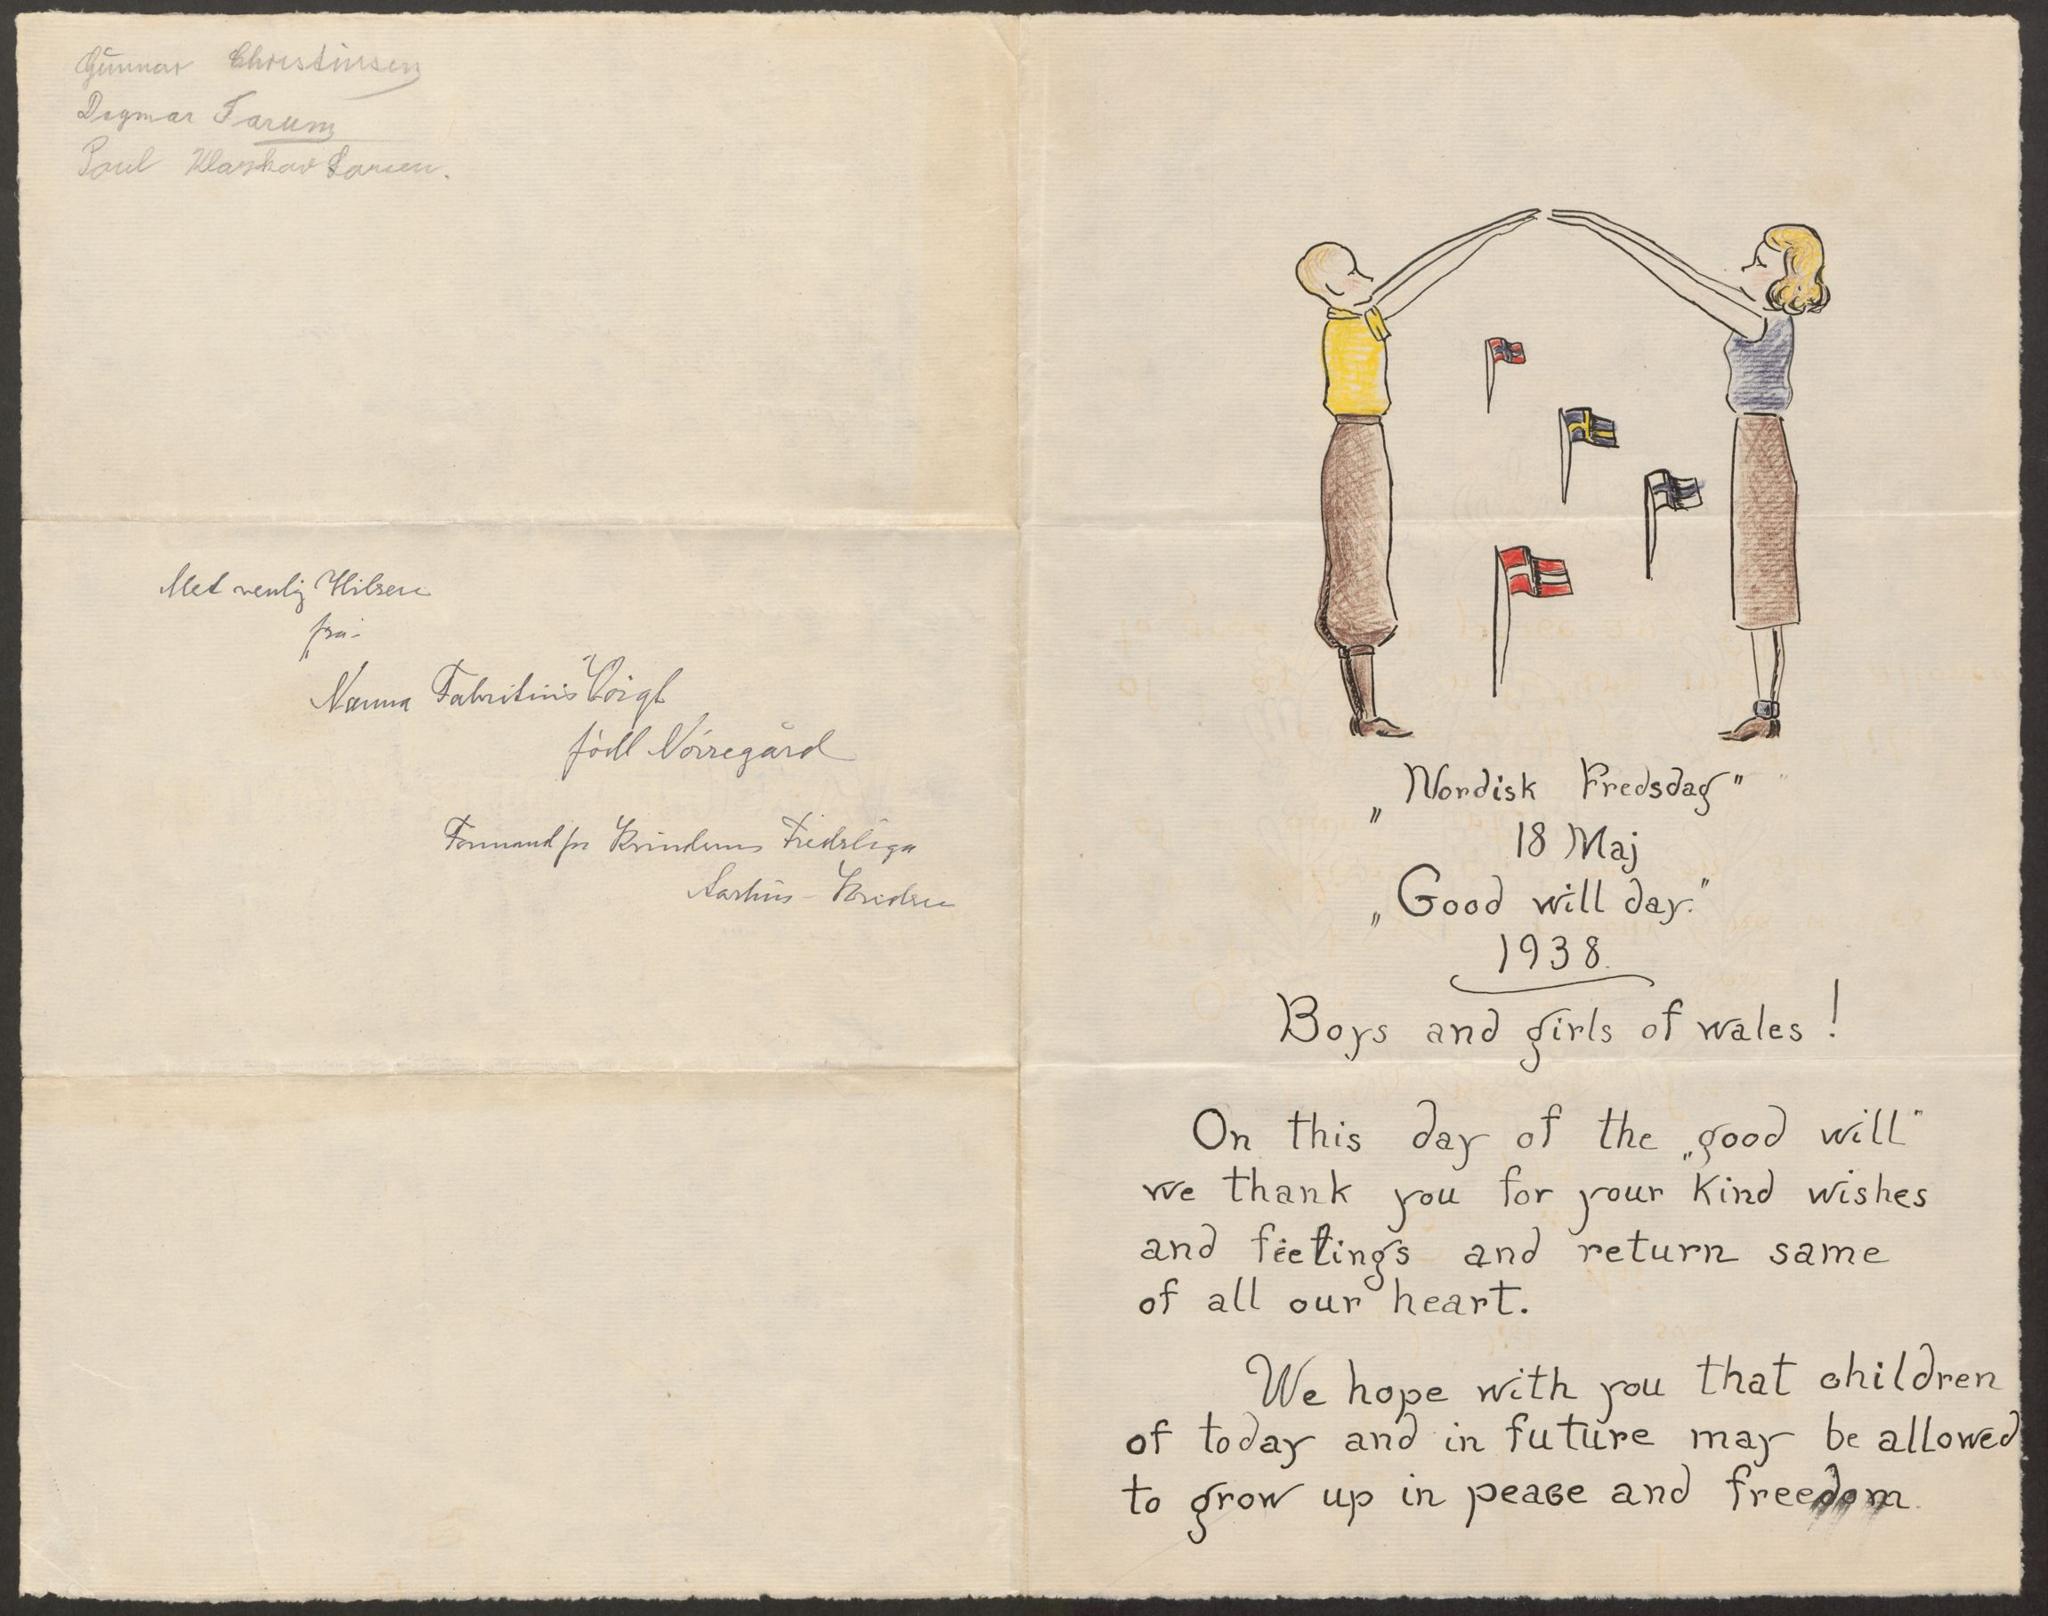 Gunnar Christensen
Dagmar Farum
Poul Larsen.
Med venlig Hilsen
fra
Nanna Fabritius Voigt
född Nörregård
Formand for Kvindernes Fredsliga
Aarhus - Kredsen
„Nordisk Fredsdag"
18 Maj
„Good will day."
1938.
Boys and girls of wales!
On this day of the „good will"
we thank you for your kind wishes
and feelings and return same
of all our heart.
We hope with you that children
of today and in future may be allowed
to grow up in peace and freedom.